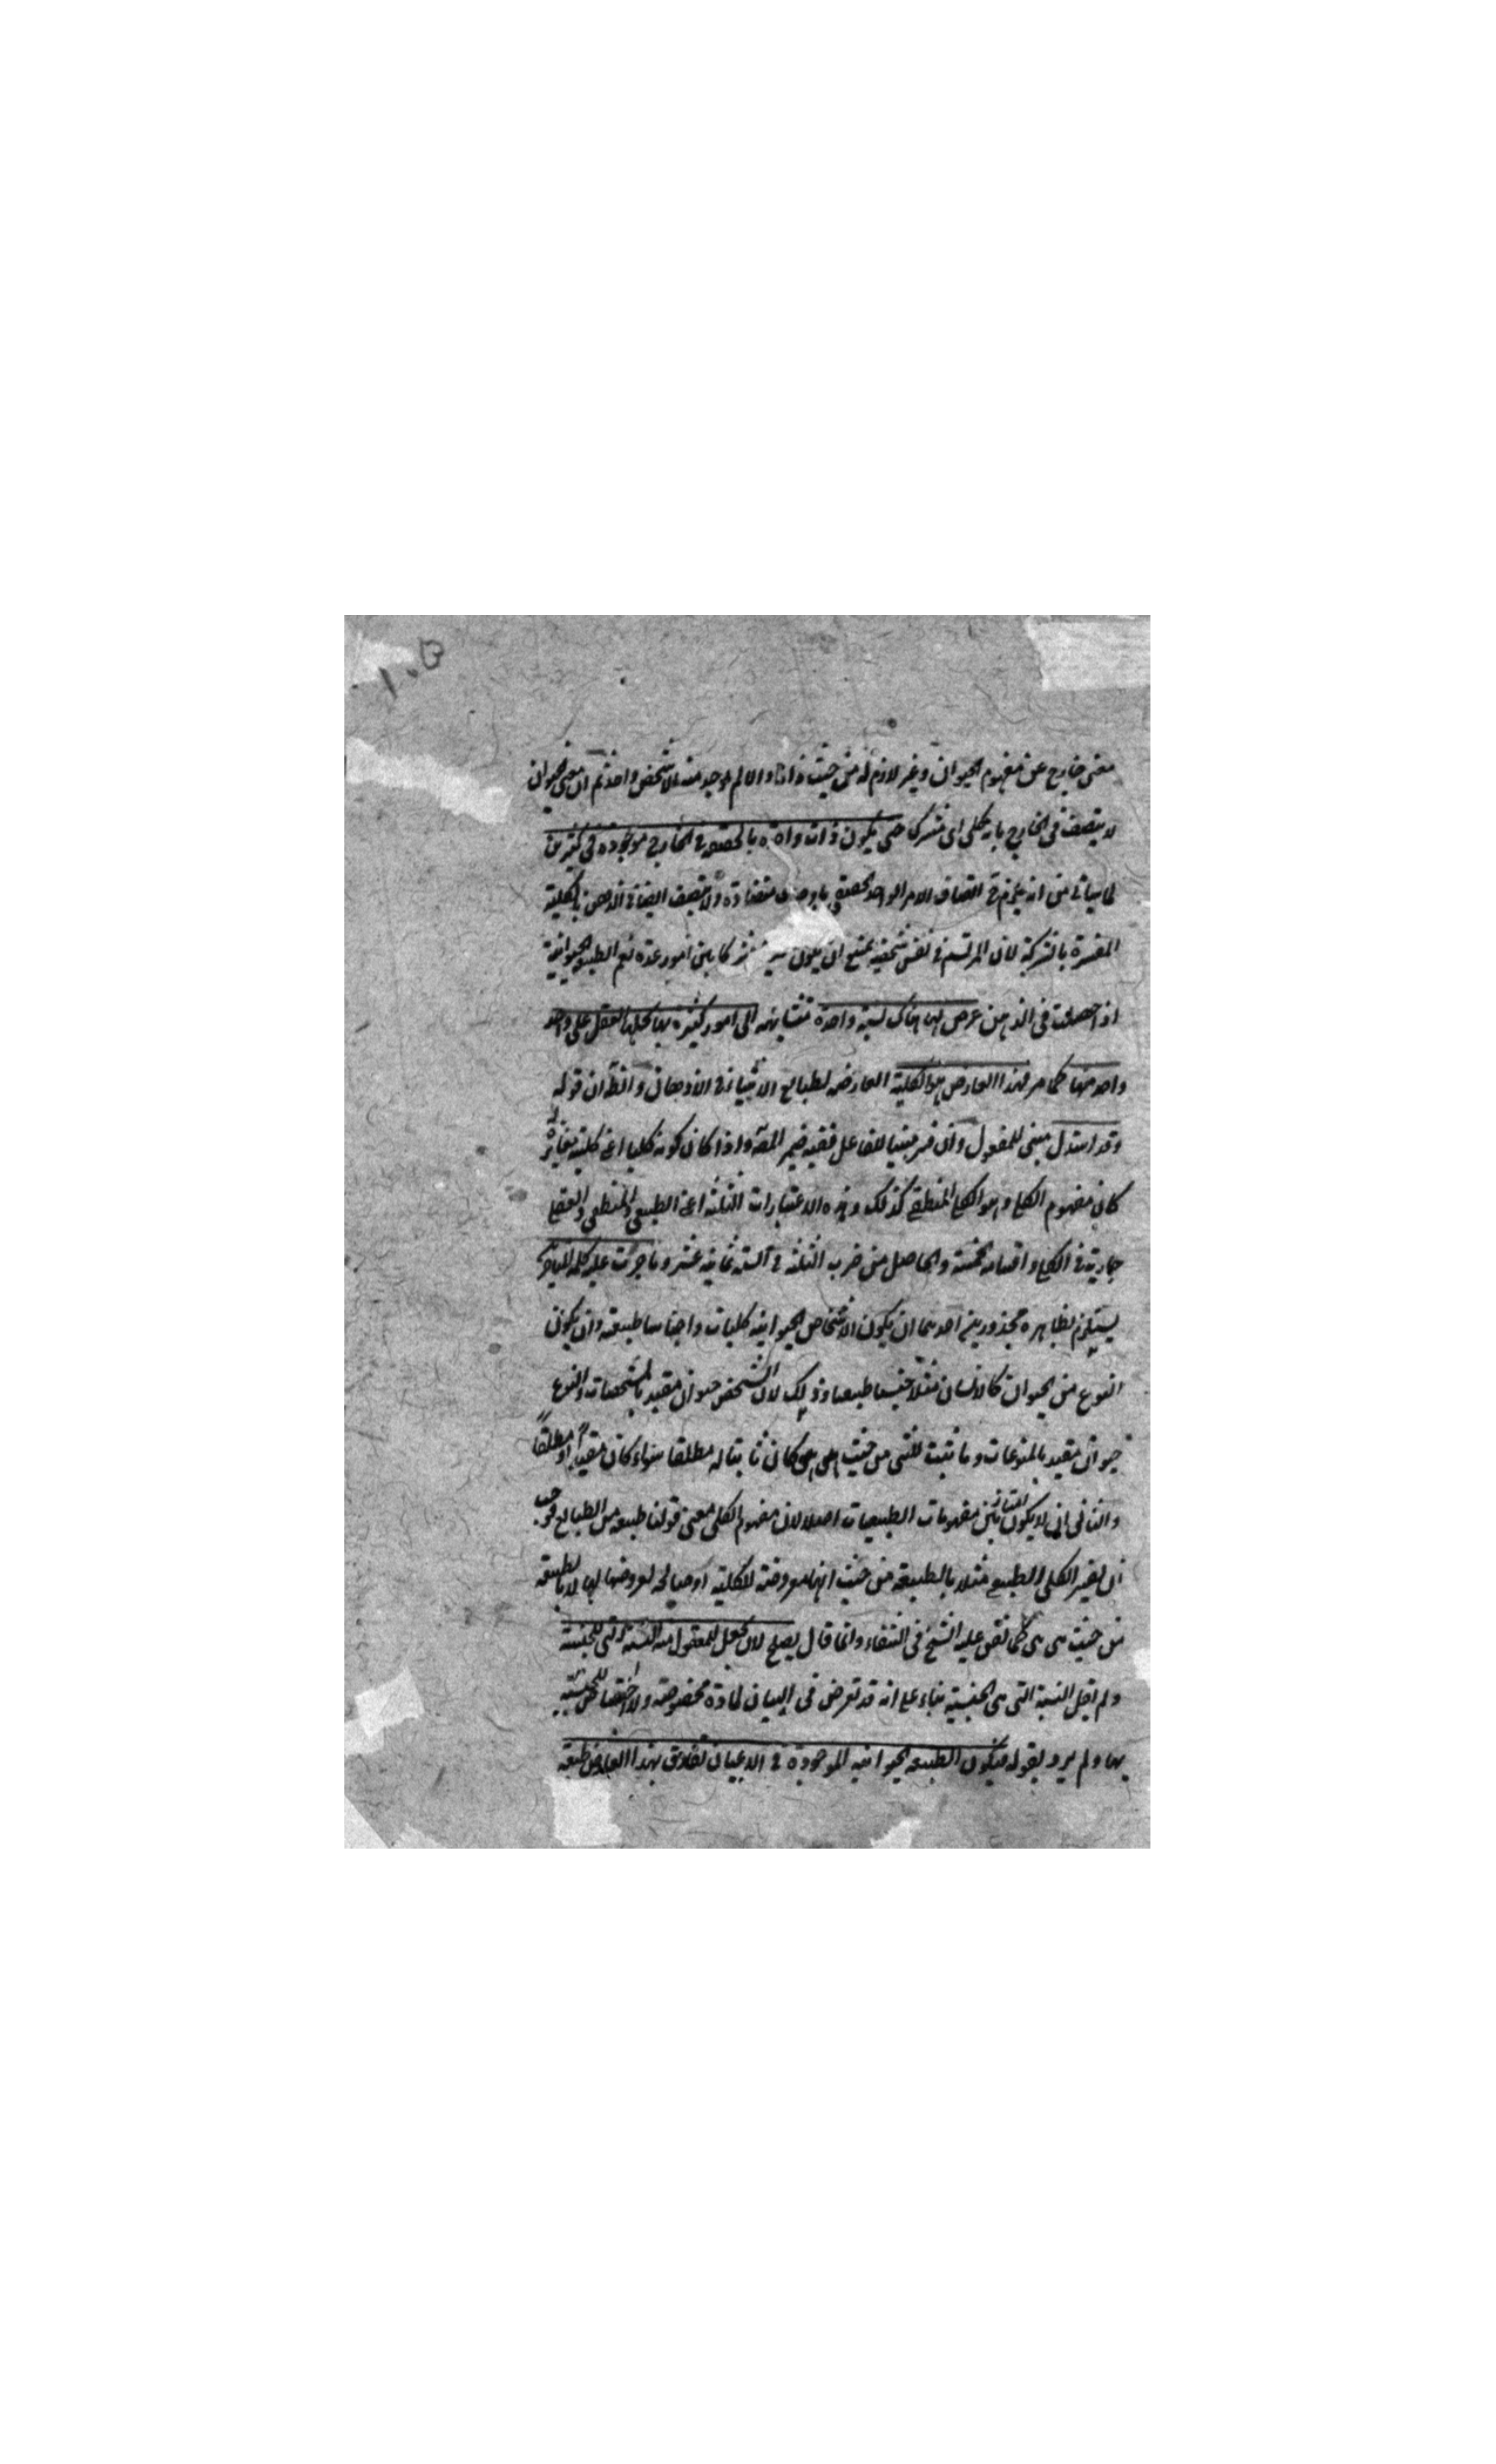 ١٠٥
معنى خارج عن مفهوم الحيوان وغير لازم له من حيث ذاته والا لم يوجد منه الا شخص واحد ثم ان معنى الحيوان
لا يتصف في الخارج بانه كلى اى مشترك حتى يكون ذات واحدة بالحقيقة في الخارج موجودة في كثيرين
لما سيأتى من انه يلزم ح اتصاف الامر الواحد الحقيقي باوصاف متضادة ولا يتصف ايضا في الذهن بالكلية
المفسرة بالشركة لان المرتسم في نفس شخصية يمتنع ان يكون مشتركا بين امور عدة نعم الطبيعة الحيوانية
اذا حصلت في الذهن عرض لها هناك نسبة واحدة متشابهة الى امور كثيرة بها يحملها العقل على واحد
واحد منها كما مر فهذا العارض هو الكلية العارضة لطبايع الاشياء في الاذهان والظ ان قوله
وقد استدل مبنى للمفعول وان قرء مبنيا للفاعل ففيه ضمير المصة واذا كان كونه كليا اعنى كليته مغايرة له
كان مفهوم الكلى وهو الكلى المنطقى كذلك وهذه الاعتبارات الثلثة اعنى الطبيعى والمنطقى والعقلى
جارية في الكلى واقسامه الخمسة والحاصل من ضرب الثلثة في الستة ثمانية عشر وما جرت عليه كلمة المتأخرين
يستلزم بظاهره محذورين احدهما ان يكون الاشخاص الحيوانية كليات واجناسا طبيعية وان يكون
النوع من الحيوان كالانسان مثلا جنسا طبيعيا وذلك لان الشخص حيوان مقيد بالمشخصات والنوع
حيوان مقيد بالمنوعات وما ثبت للشى من حيث هى هى كان ثابتا له مطلقا سواء كان مقيدا او مطلقا
والثانى ان لا يكون امتياز بين مفهومات الطبيعيات اصلا لان مفهوم الكلى معنى قولنا طبيعة من الطبايع فوجب
ان يفسر الكلى الطبيعى مثلا بالطبيعة من حيث انها معروضة للكلية او صالحة لعروضها لها لا بالطبيعة
من حيث هى هى كما نص عليه الشيخ في الشفاء وانما قال يصلح لان يجعل للمعقول منه النسبة التى للجنسية
ولم يقل النسبة التى هى الجنسية بناء على انه قد تعرض في البيان لمادة مخصوصة ولا اختصاص للجنسية
بها ولم يرد بقوله فيكون الطبيعة الحيوانية الموجودة في الاعيان تفارق بهذا العارض طبيعة